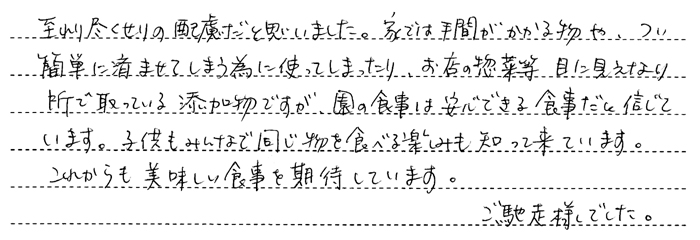 至れり尽くせりの配慮だと思いました。家では手間がかかる物や、つい
簡単に済ませてしまう為に使ってしまったり、お店の惣菜等 目に見えない
所で取っている添加物ですが、園の食事は安心できる食事だと信じて
います。子供もみんなで同じ物を食べる楽しみも知って来ています。
これからも美味しい食事を期待しています。
ご馳走様でした。